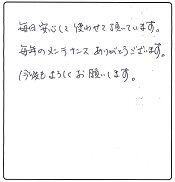 毎日安心して使わせて頂いています。
毎年のメンテナンスありがとうございます。
今後もよろしくお願いします。